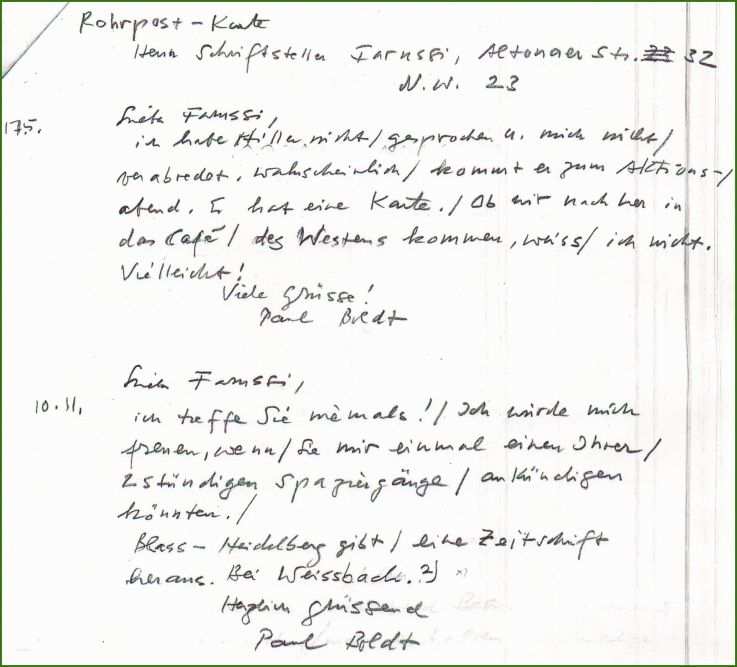 Rohrpost-Karte
Herrn Schriftsteller Farussi, Altonaer Str. 32
N.W. 23
175. Lieber Farussi,
ich habe Hiller nicht/ gesprochen u. mich nicht/
verabredet. wahrscheinlich/ kommt er zum Aktions-/
abend. Er hat eine Karte./ Ob wir nachher in
das Café/ des Westens kommen, weiss/ ich nicht.
Vielleicht!
Viele Grüsse!
Paul Boldt
Lieber Farussi,
10.11. ich treffe Sie niemals!/ Ich würde mich
freuen, wenn/ Sie mir einmal einen Ihrer/
2stündigen Spaziergänge/ ankündigen
könnten./
Blass - Heidelberg gibt/ eine Zeitschrift
heraus. Bei Weissbach. 2)
Herzlich grüssend
Paul Boldt